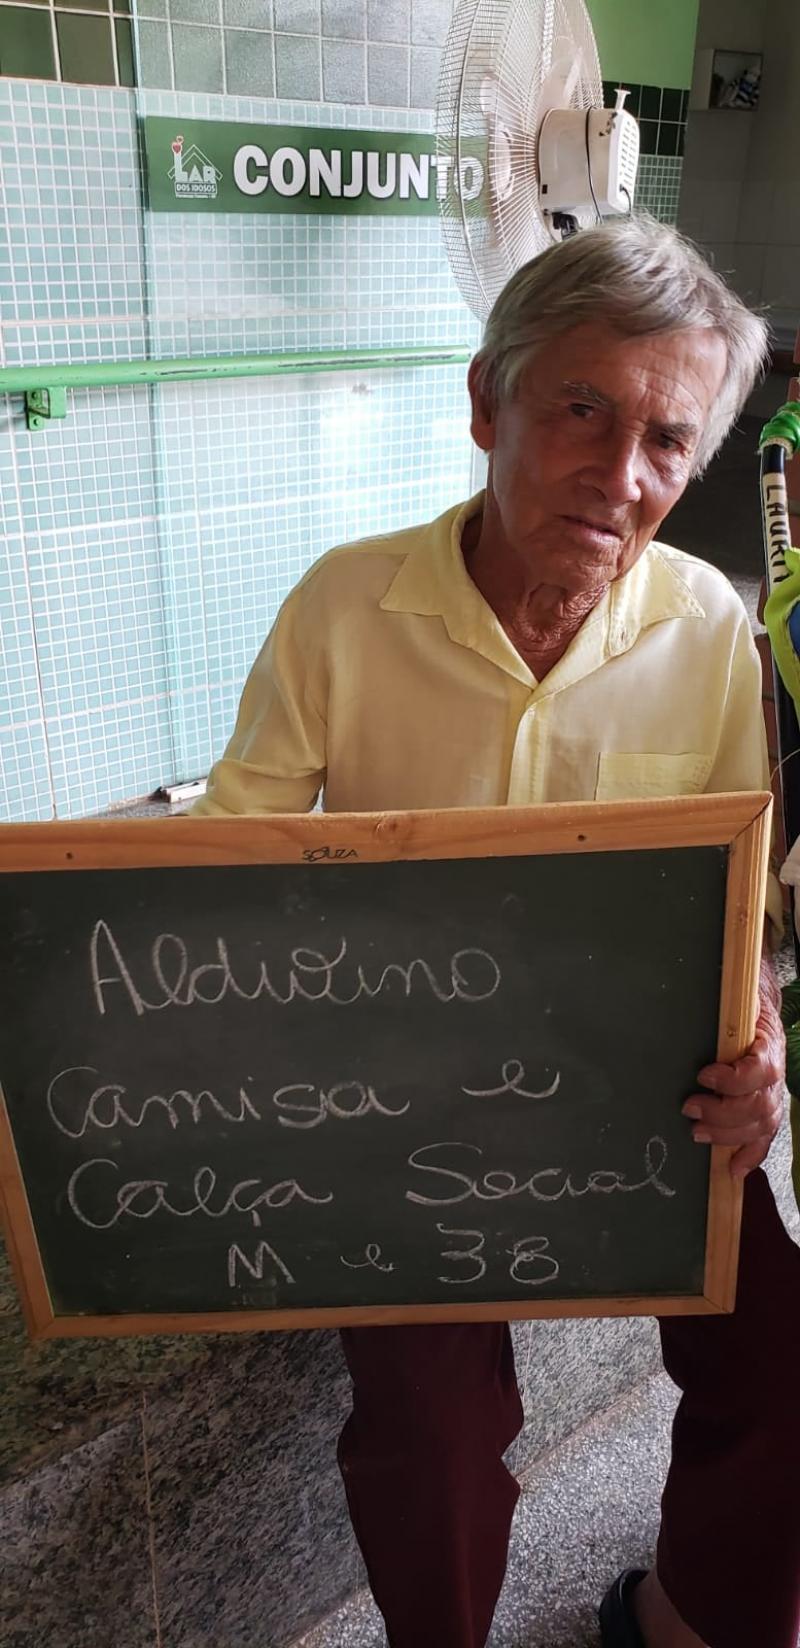 LAR
DOS IDOSOS
CONJUNTO
SOUZA
Aldivino
Camisa e
Calça Social
M e 38